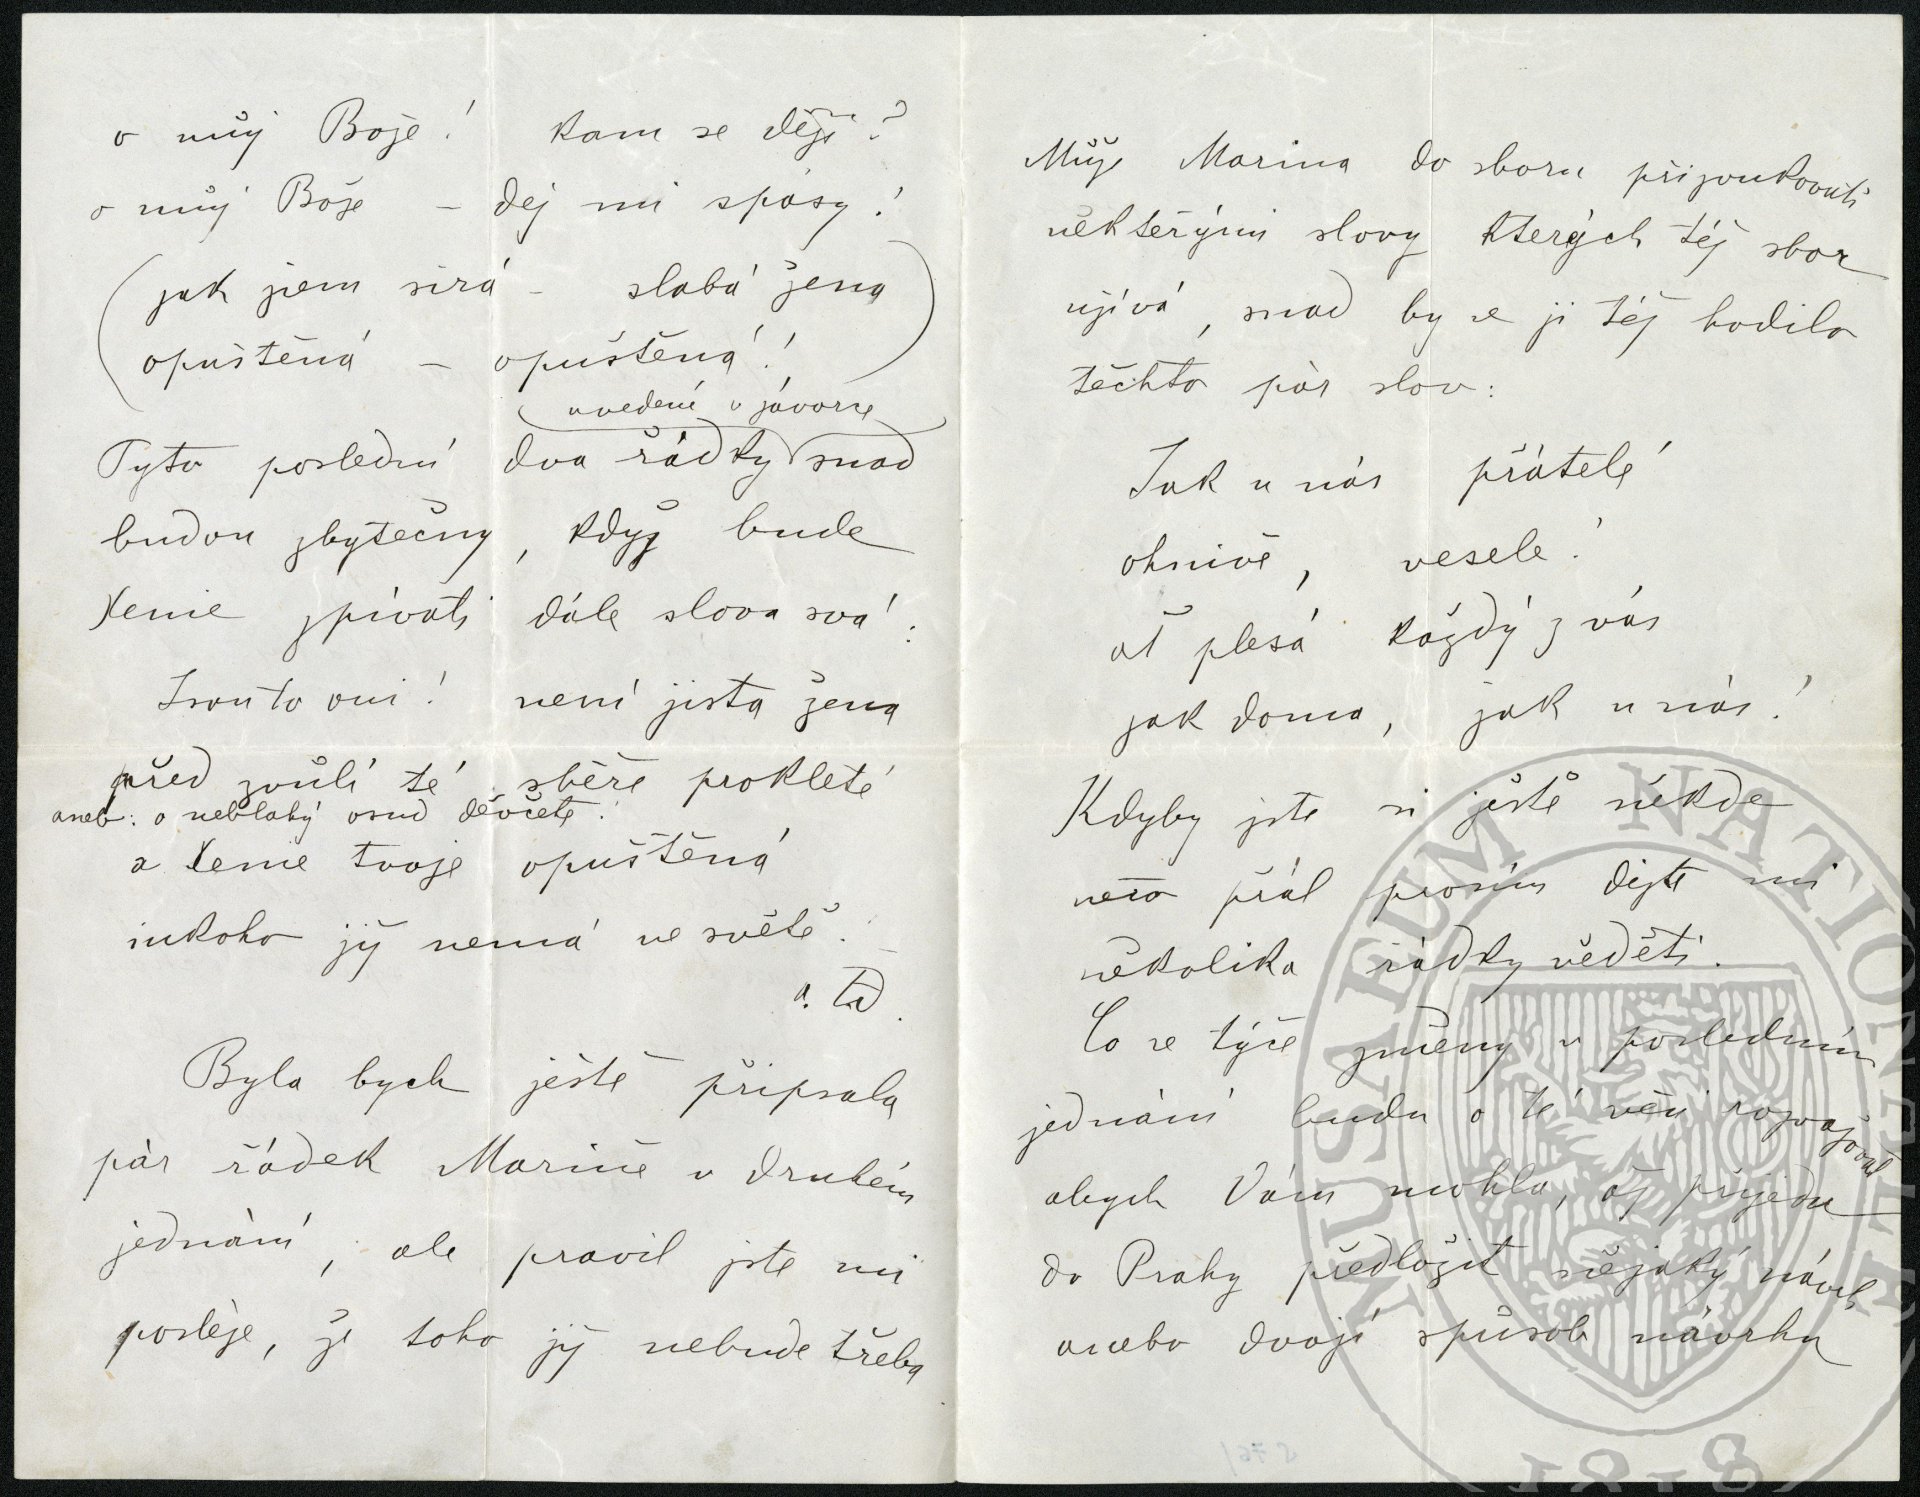 o můj Bože! kam se ději?
o můj Bože – dej mi spásy!
(jak jsem sirá – slabá žena
opuštěná – opuštěná!)
(uvedení v závorce)
Tyto poslední dva řádky snad
budou zbytečny, když bude
Xenie zpívati dále slova svá:
Jsou to oni! není jista žena
před zvůlí té sběře prokleté
aneb: o neblahý osud děvčete!
a Xenie tvoje opuštěná
nikoho již nemá ve světě.
a. td.
Byla bych ještě připsala
pár řádek Marině v druhém
jednání, ale pravil jste mi
posléze, že toho již nebude třeba
Může Marina do sboru přizvukovati
některými slovy kterých téż sbor
užívá, snad by se ji téż hodilo
těchto pár slov:
Jak u nás přátelé
ohnivě, vesele!
ať plesá každý z vás
jak doma, jak u nás!
Kdyby jste si ještě někde
něco přál prosím dejte mi
několika řádky věděti.
Co se týče změny v posledním
jednání budu o té věci rozvažovat
abych Vám mohla, až přijedu
do Prahy předložit nějaký návrh
anebo dvojí spůsob návrhu
MUSAEUM NATIONALE
1818